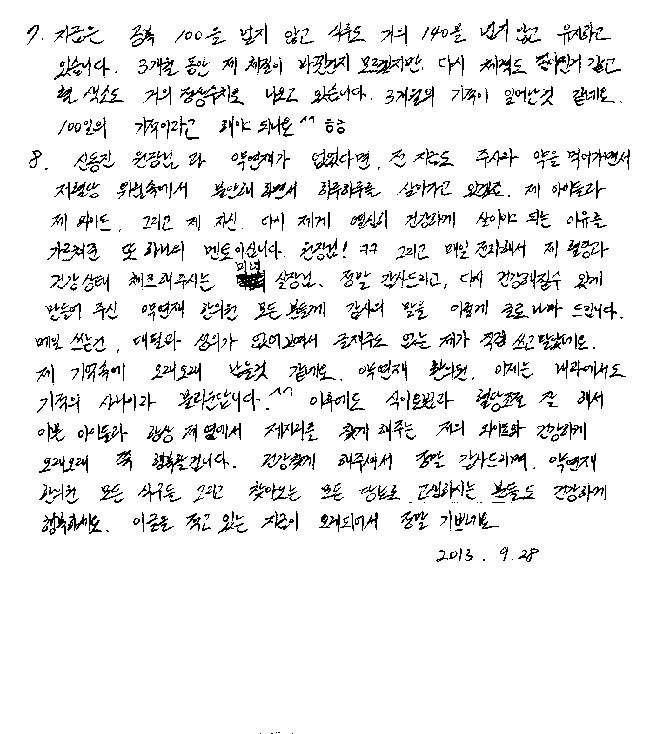 7. 지금은 공복 100을 넘지 않고 식후도 거의 140을 넘지 않고 유지하고
있습니다. 3개월 동안 제 체질이 바뀐건지 모르겠지만, 다시 체력도 좋아진거 같고
혈 색소도 거의 정상수치로 나오고 있습니다. 3개월의 기적이 일어난것 같네요.
100일의 기적이라고 해야 되나요^^ ㅎㅎ
8. 신동진 원장님 과 약연재가 없었다면, 전 지금도 주사와 약을 먹어가면서
저혈당 위험속에서 불안해 하면서 하루하루를 살아가고 있겠죠. 제 아이들과
제 와이프, 그리고 제 자신. 다시 제게 열심히 건강하게 살아야 되는 이유를
가르쳐준 또 하나의 멘토이십니다. 원장님! ㅋㅋ 그리고 매일 전화해서 제 혈당과
건강상태 체크해주시는 미녀 실장님. 정말 감사드리고, 다시 건강해질수 있게
만들어 주신 약연재 한의원 모든 분들께 감사의 말을 이렇게 글로나마 드립니다.
메일 쓰는건, 대필과 성의가 없어보여서 글재주도 없는 제가 직접 쓰고 말았네요.
제 기억속에 오래오래 남을것 같네요. 약연재 한의원. 이제는 내과에서도
기적의 사나이라 불리운답니다.^^ 이후에도 식이요법과 혈당조절 잘 해서
이쁜 아이들과 항상 제 옆에서 제자리를 찾게 해주는 저의 와이프와 건강하게
오래오래 쭉 행복할겁니다. 건강찾게 해주셔서 정말 감사드리며, 약연재
한의원 모든 식구들 그리고 찾아오는 모든 당뇨로 고생하시는 분들도 건강하게
행복하세요. 이글을 적고 있는 지금이 오래되어서 정말 기쁘네요
2013. 9. 28